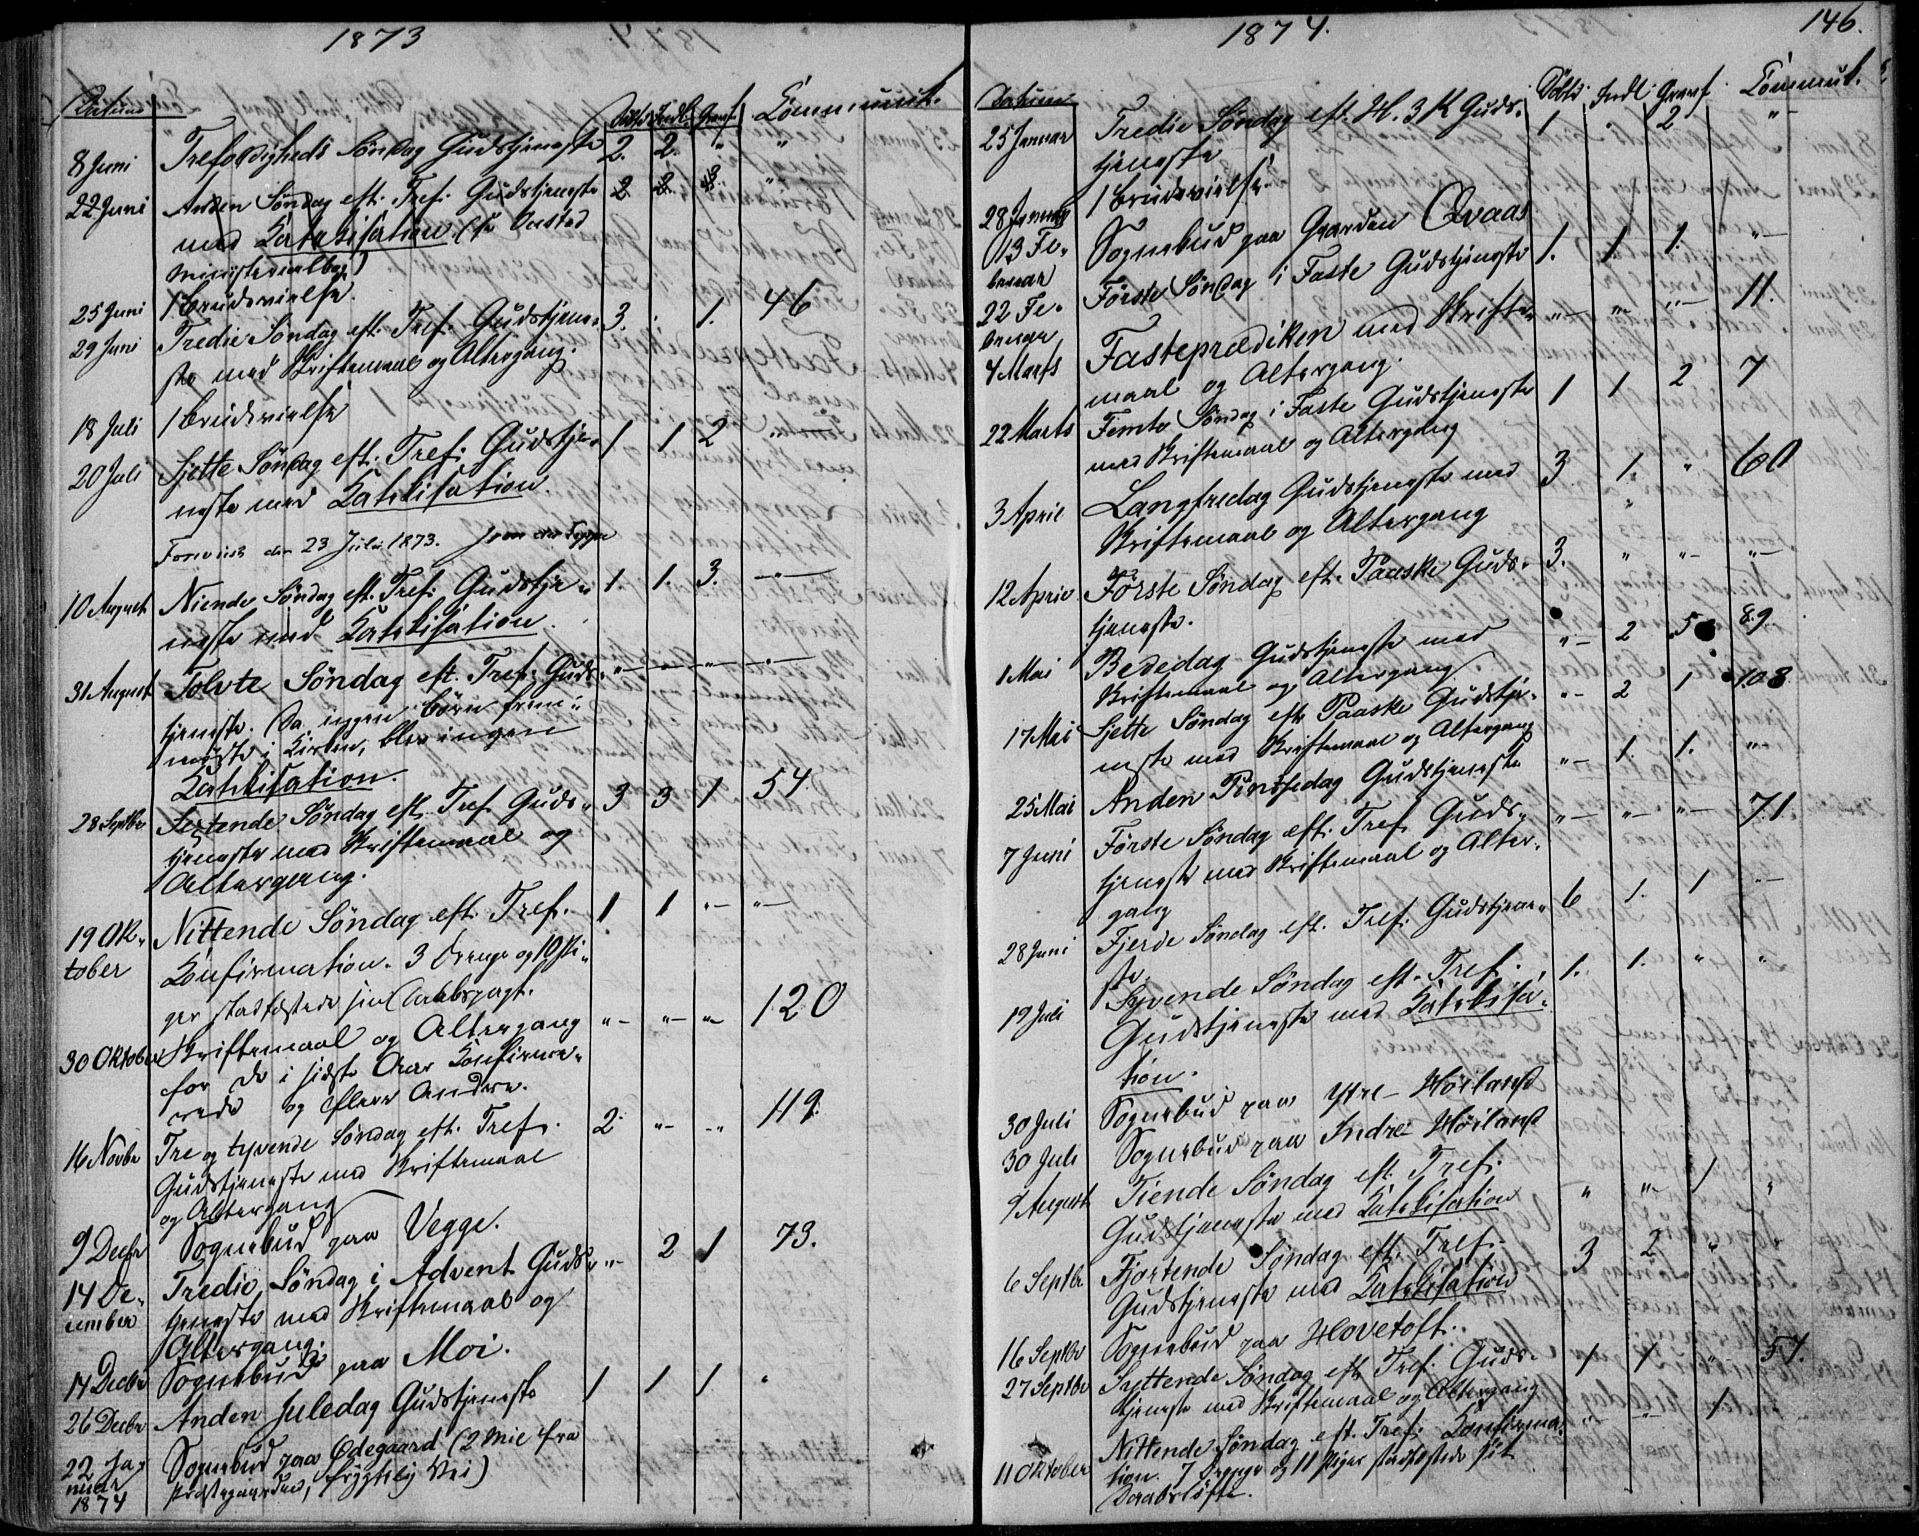 1873
Datum Døbte Indl. Graf. Commun.
8 Juni Trefoldigheds Søndag Gudstjeneste 2. 2. " "
22 Juni Anden Søndag eft. Tref. Gudstjeneste 2 2. 3. "
med Katekisation (se Ousted
Ministerialbog)
25 Juni 1 Brudevielse.
29 Juni Tredie Søndag eft. Tref. Gudstjene- 3. . 1. 46
ste med Skriftemaal og Altergang.
18 Juli 1 Brudevielse
20 Juli Sjette Søndag eft. Tref. Gudstje- 1 1 2 "
neste med Katekisation.
Forevist den 23 Juli 1873.
10 August Niende Søndag eft. Tref. Gudstje- 1. 1. 3. "
neste med Katekisation.
31 August Tolvte Søndag eft. Tref. Guds- " " " "
tjeneste. Da ingen Børn frem-
mødte i Kirken, blev ingen
Katekisation.
28 Septbr Sextende Søndag eft. Tref. Guds- 3 3 1 54
tjeneste med Skriftemaal og
Altergang.
19 Ok- Nittende Søndag eft. Tref. 1 1 " "
tober Konfirmation. 3 Drenge og 10 Pi-
ger stadfæstede sin Daabspagt.
30 Oktober Skriftemaal og Altergang " " " 120
for de i sidste Aar Konfirme-
rede og flere Andre.
16 Novbr Tre og tyvende Søndag eft. Tref. 2. " " 119.
Gudstjeneste med Skriftemaal
og Altergang
9 Decbr Sognebud paa Vegge.
14 De- Tredie Søndag i Advent Guds- " 2 1 73.
cember tjeneste med Skriftemaal og
Altergang.
14 Decbr Sognebud paa Moi.
26 Decbr Anden Juledag Gudstjeneste 1 1 1 "
22 Ja- Sognebud paa Ødegaard (2 Mil fra
nuar Præstegaarden, frygtelig Vei)
1874
1874. 146.
Datum Døbte Indl. Graf. Commun.
25 Januar Tredie Søndag eft. H. 3 K Guds- 1 . 2 "
tjeneste
28 Januar 1 Brudevielse.
13 Fe- Sognebud paa Gaarden Qvaas
bruar
22 Fe- Første Søndag i Faste Gudstjeneste 1. 1 1. "
bruar
4 Marts Fasteprædiken med Skrifte- " " " 11.
maal og Altergang.
22 Marts Femte Søndag i Faste Gudstjeneste 1 1 2 7
med Skriftemaal og Altergang
3 April Langfredag Gudstjeneste med 3. 1. " 60
Skriftemaal og Altergang
12 April Første Søndag eft. Paaske Guds- 3. " " "
tjeneste.
1 Mai Bededag Gudstjeneste med " 2 5 89
Skriftemaal og Altergang
17 Mai Sjette Søndag eft. Paaske Gudstje- " 2 1 108
neste med Skriftemaal og Altergang
25 Mai Anden Pinsedag Gudstjeneste " 1. 1. "
7 Juni Første Søndag eft. Tref. Guds- " " " 71
tjeneste med Skriftemaal og Alter-
gang
28 Juni Fjerde Søndag eft. Tref. Gudstjene- 6 1. 1 "
ste.
19 Juli Syvende Søndag eft. Tref. 1. 1. " "
Gudstjeneste med Katekisa-
tion.
30 Juli Sognebud paa Ytre-Høiland
30 Juli Sognebud paa Indre Høiland
9 August Tiende Søndag eft. Tref. " " 1 "
Gudstjeneste med Katekisation
6 Septbr Fjortende Søndag eft. Tref. 3 2 " "
Gudstjeneste med Katekisation
16 Septbr Sognebud paa Hovetoft.
27 Septbr Syttende Søndag eft. Tref. Guds- 1 1 " 57.
tjeneste med Skriftemaal og Altergang
11 Oktober Nittende Søndag eft. Tref. Konfirma- " " 1
tion. 7 Drenge og 11 Piger stadfæstede sit
Daabsløfte.